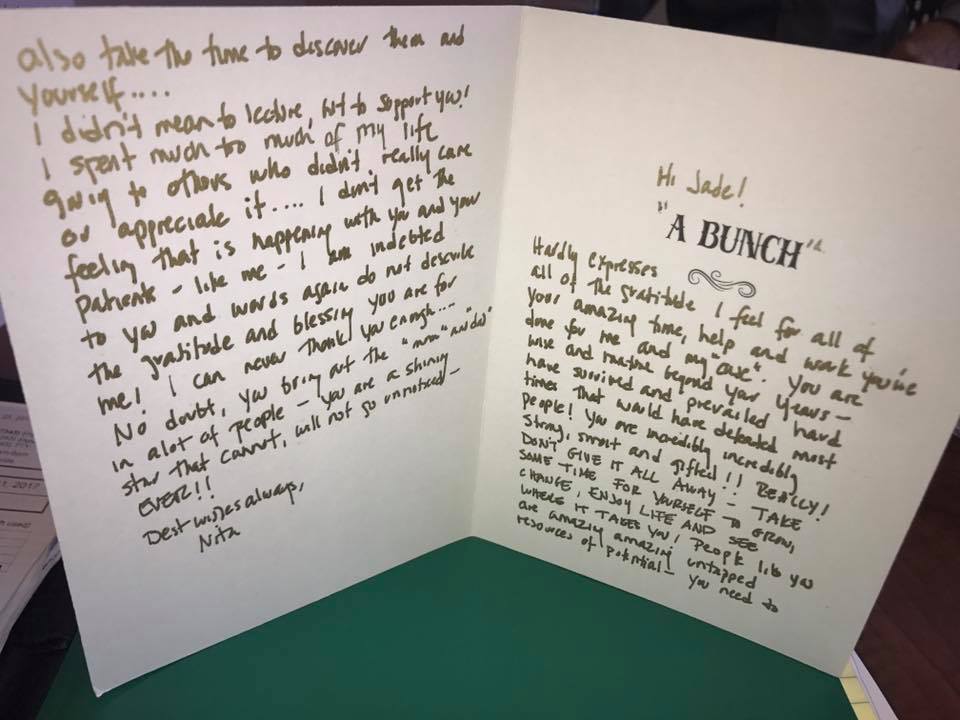 Hi Jade!
"A BUNCH"
Hardly expresses
all of the gratitude I feel for all of
your amazing time, help and work you've
done for me and my "case". You are
wise and mature beyond your years –
have survived and prevailed hard
times that would have defeated most
people! You are incredibly incredibly
strong, smart and gifted!! REALLY!
DON'T GIVE IT ALL AWAY – TAKE
SOME TIME FOR YOURSELF TO GROW,
CHANGE, ENJOY LIFE AND SEE
WHERE IT TAKES YOU! People like you
are amazing amazing untapped
resources of potential – you need to
also take the time to discover them and
yourself....
I didn't mean to lecture, but to support you!
I spent much too much of my life
giving to others who didn't really care
or appreciate it.... I don't get the
feeling that is happening with you and your
patients – like me – I am indebted
to you and words again do not describe
the gratitude and blessing you are for
me! I can never thank you enough....
No doubt, you bring out the "mom" and dad"
in alot of people – you are a shining
star that cannot, will not go unnoticed –
EVER!!
Best wishes always,
Nita
2017